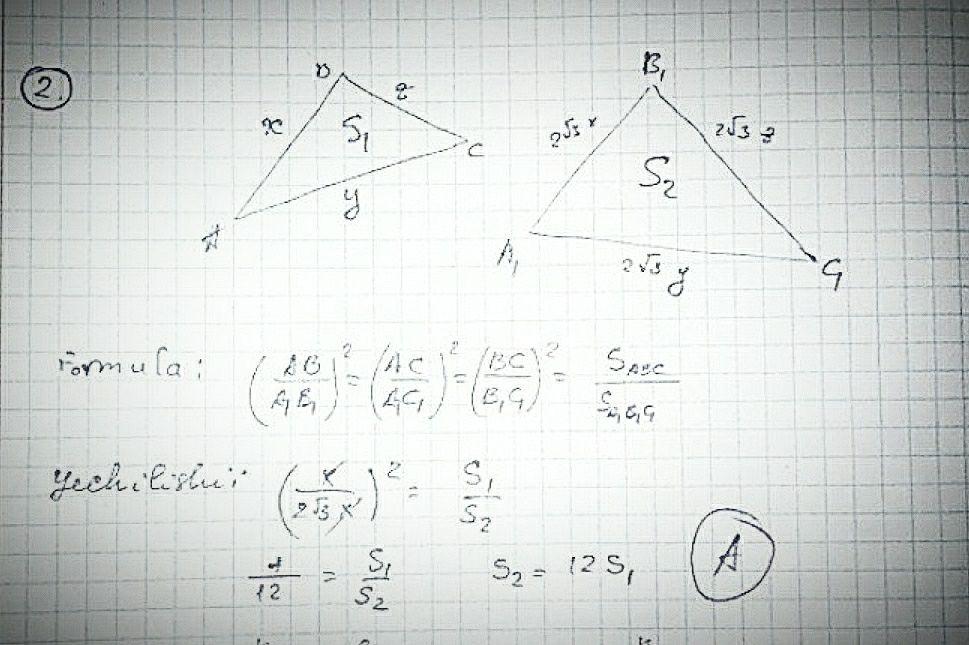 2.
B z B₁
x S₁ C 2√3 x 2√3 z
y S₂
A A₁ 2√3 y C₁
Formula: (AB/A₁B₁)² = (AC/A₁C₁)² = (BC/B₁C₁)² = S_ABC/S_A₁B₁C₁
Yechilishi: (x/2√3 x)² = S₁/S₂
1/12 = S₁/S₂ S₂ = 12 S₁ A